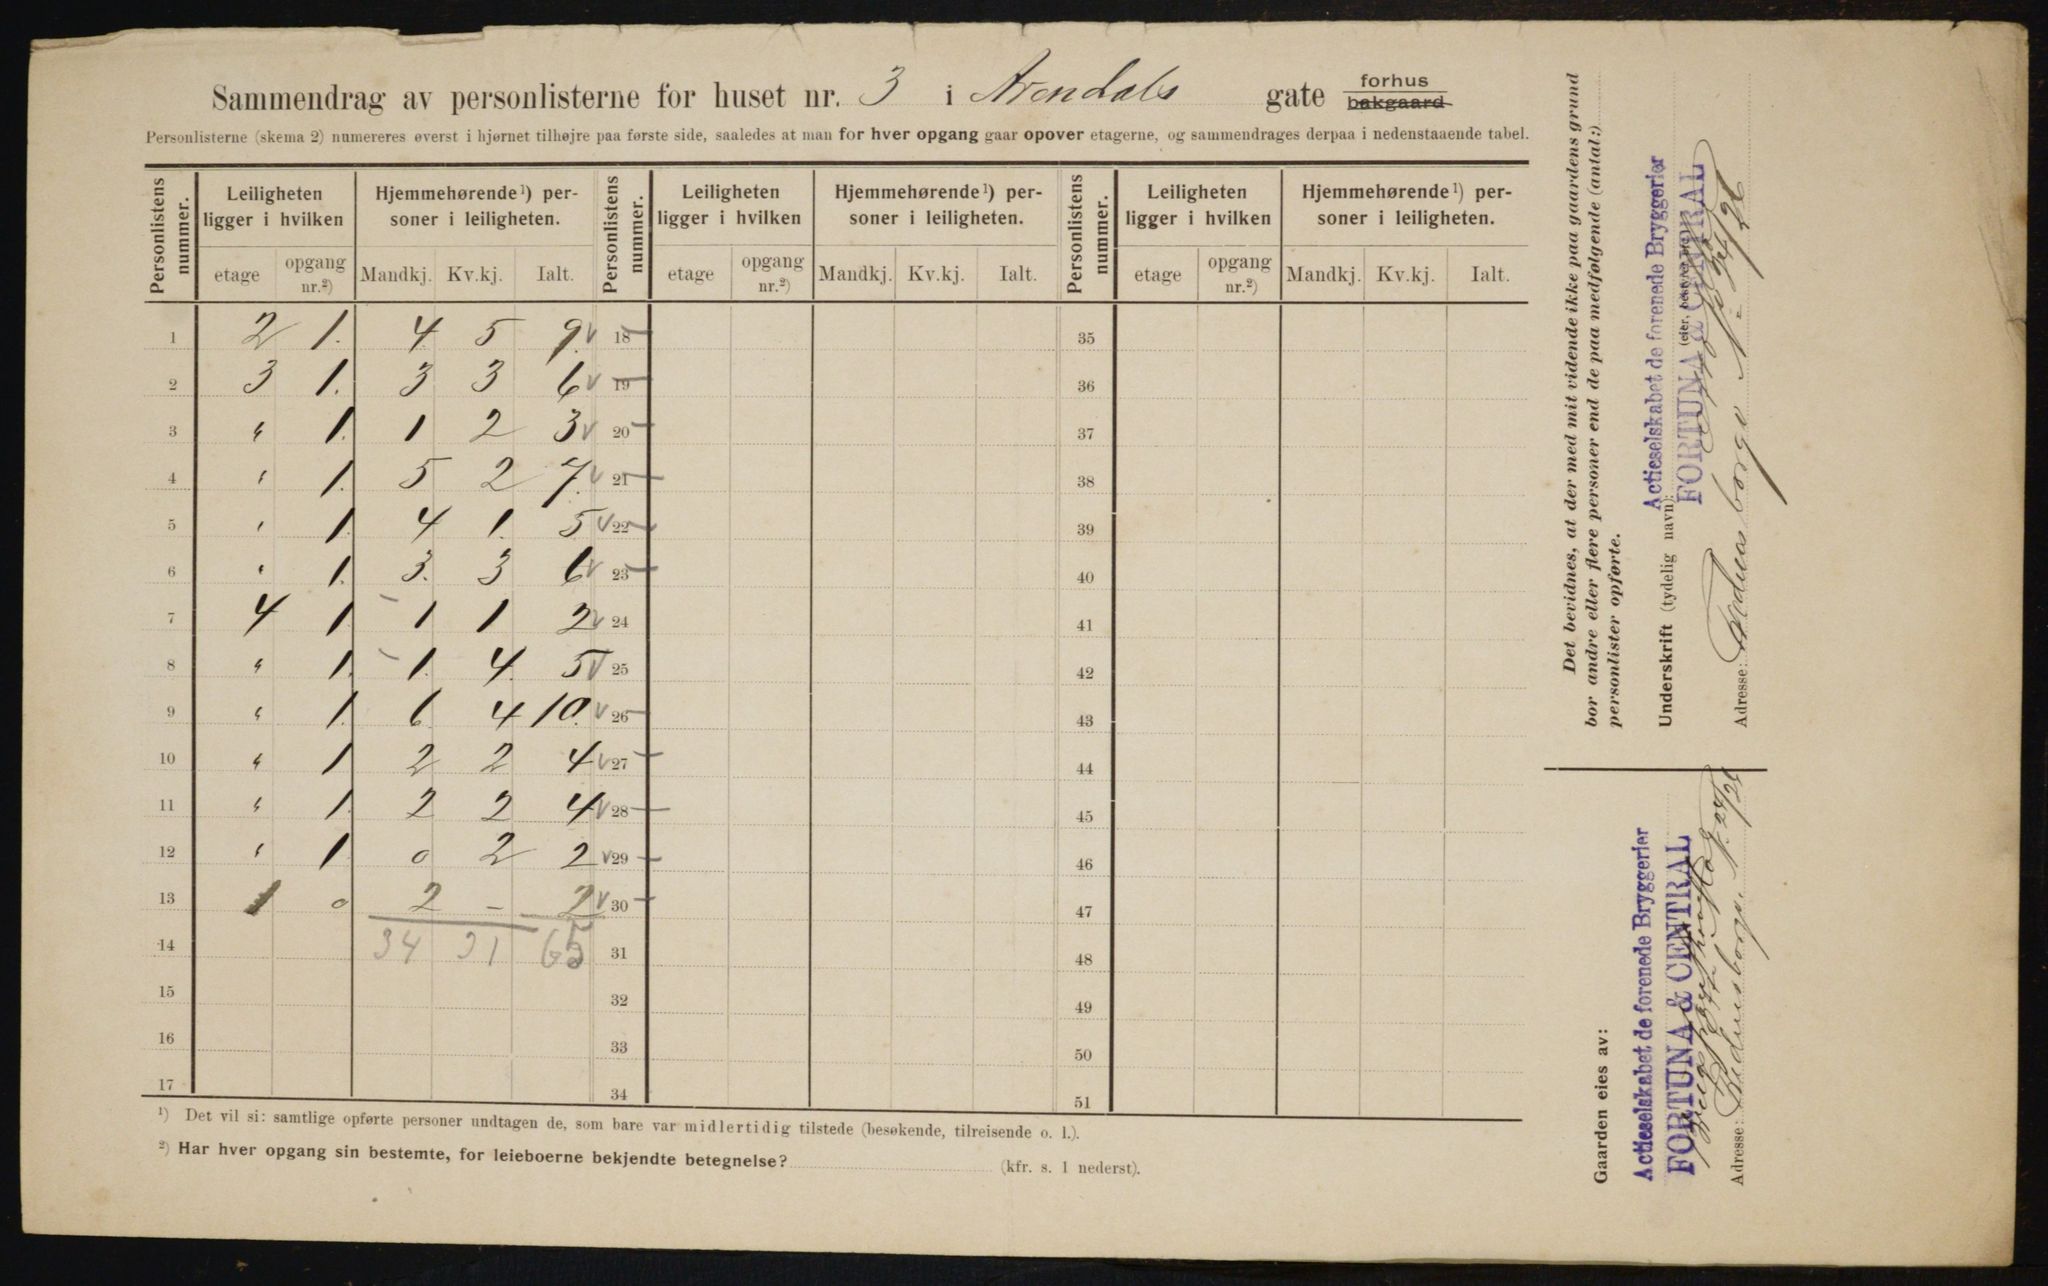 Sammendrag av personlisterne for huset nr. 3 i Arendals gate forhus bakgaard
Personlisterne (skema 2) numereres øverst i hjørnet tilhøjre paa første side, saaledes at man for hver opgang gaar opover etagerne, og sammendrages derpaa i nedenstaaende tabel.
Personlistens nummer. Leiligheten ligger i hvilken Hjemmehørende¹) personer i leiligheten. Personlistens nummer. Leiligheten ligger i hvilken Hjemmehørende¹) personer i leiligheten. Personlistens nummer. Leiligheten ligger i hvilken Hjemmehørende¹) personer i leiligheten.
etage opgang nr.²) Mandkj. Kv.kj. Ialt. etage opgang nr.²) Mandkj. Kv.kj. Ialt. etage opgang nr.²) Mandkj. Kv.kj. Ialt.
1 2 1. 4 5 9. 18 35
2 3 1. 3 3 6 19 36
3 " 1. 1 2 3 20 37
4 " 1. 5 2 7. 21 38
5 " 1. 4 1. 5 22 39
6 " 1. 3. 3 6 23 40
7 4 1 1 1 2 24 41
8 " 1. 1. 4. 5 25 42
9 " 1. 6. 4 10. 26 43
10 " 1 2 2 4 27 44
11 " 1. 2 2 4 28 45
12 " 1 0 2 2 29 46
13 1 0 2 – 2 30 47
14 34 31 65 31 48
15 32 49
16 33 50
17 34 51
¹) Det vil si: samtlige opførte personer undtagen de, som bare var midlertidig tilstede (besøkende, tilreisende o. l.).
²) Har hver opgang sin bestemte, for leieboerne bekjendte betegnelse? (kfr. s. 1 nederst).
Det bevidnes, at der med mit vidende ikke paa gaardens grund
bor andre eller flere personer end de paa medfølgende (antal:)
personlister opførte.
Actieselskabet de forenede Bryggerier
FORTUNA & CENTRAL
Underskrift (tydelig navn):
(eier, bestyrer etc.)
Adresse:
24/26
Gaarden eies av:
Actieselskabet de forenede Bryggerier
FORTUNA & CENTRAL
Adresse:
24/26